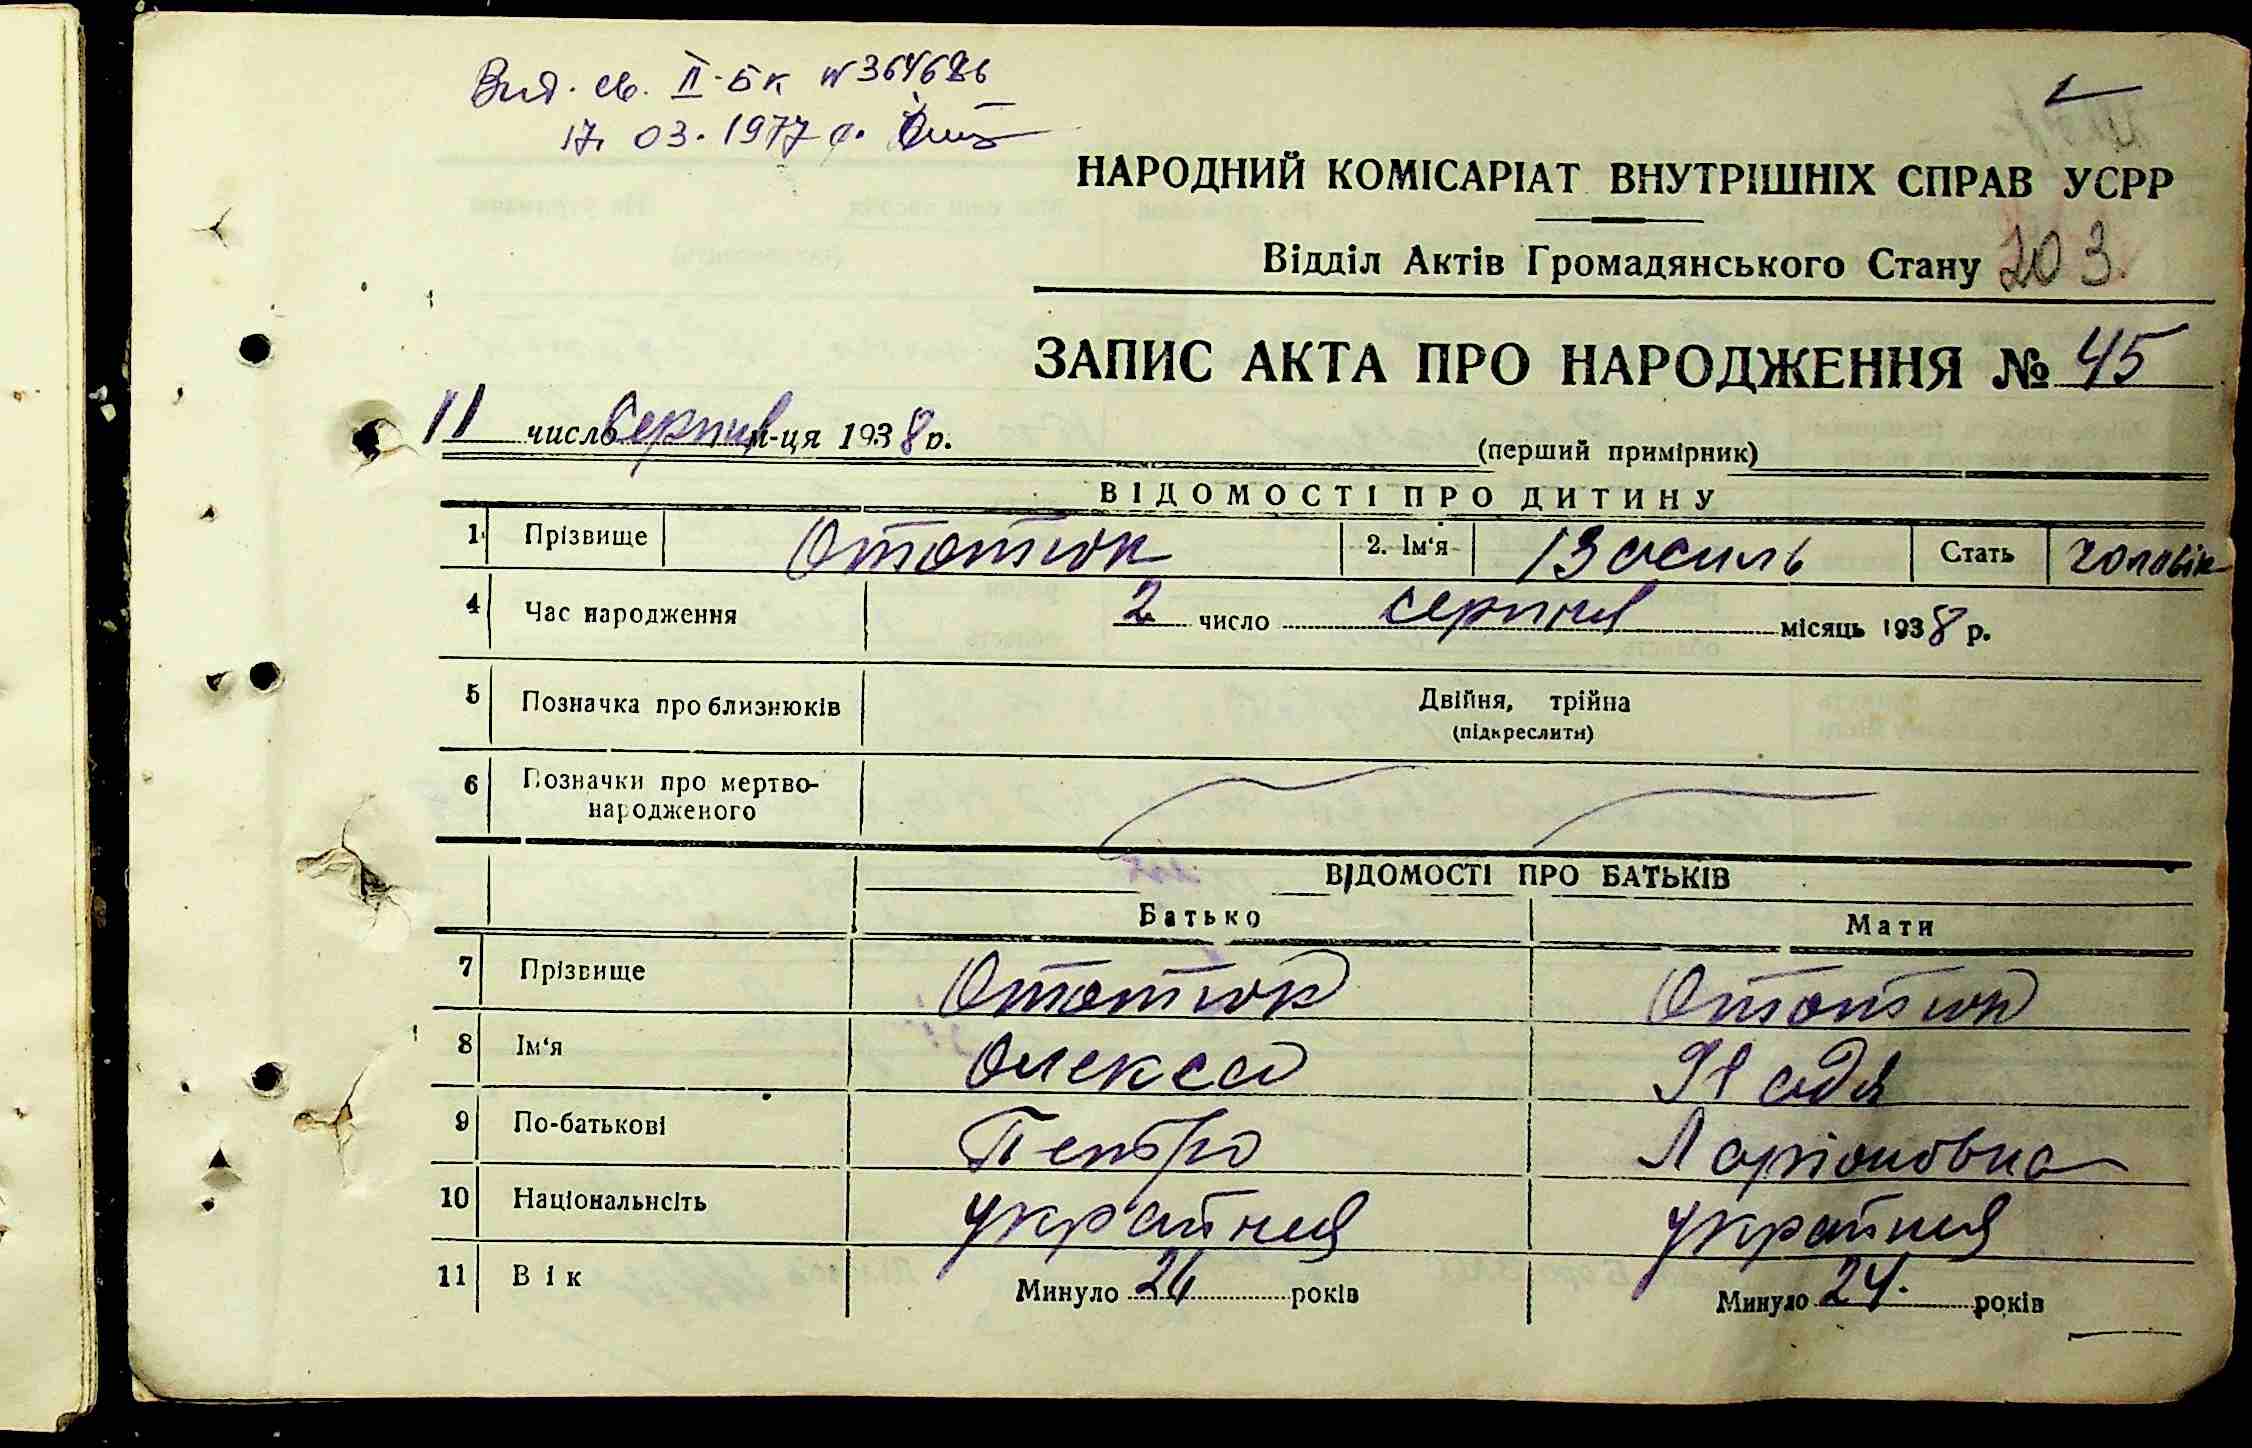 Вид. св. II-БК № 364686
17. 03. 1977 р.
НАРОДНИЙ КОМІСАРІАТ ВНУТРІШНІХ СПРАВ УСРР
Відділ Актів Громадянського Стану 203.
ЗАПИС АКТА ПРО НАРОДЖЕННЯ № 45
11 число серпня м-ця 1938 р.
(перший примірник)
ВІДОМОСТІ ПРО ДИТИНУ
1 Прізвище Отатюк 2. Ім'я Василь Стать чоловік
4 Час народження 2 число серпня місяць 1938 р.
5 Позначка про близнюків Двійня, трійна
(підкреслити)
6 Позначки про мертво-
народженого
ВІДОМОСТІ ПРО БАТЬКІВ
Батько Мати
7 Прізвище Отатюк Отатюк
8 Ім'я Олекса Надя
9 По-батькові Петро Ларіоновна
10 Національнсіть українця українця
11 Вік Минуло 26 років Минуло 24. років